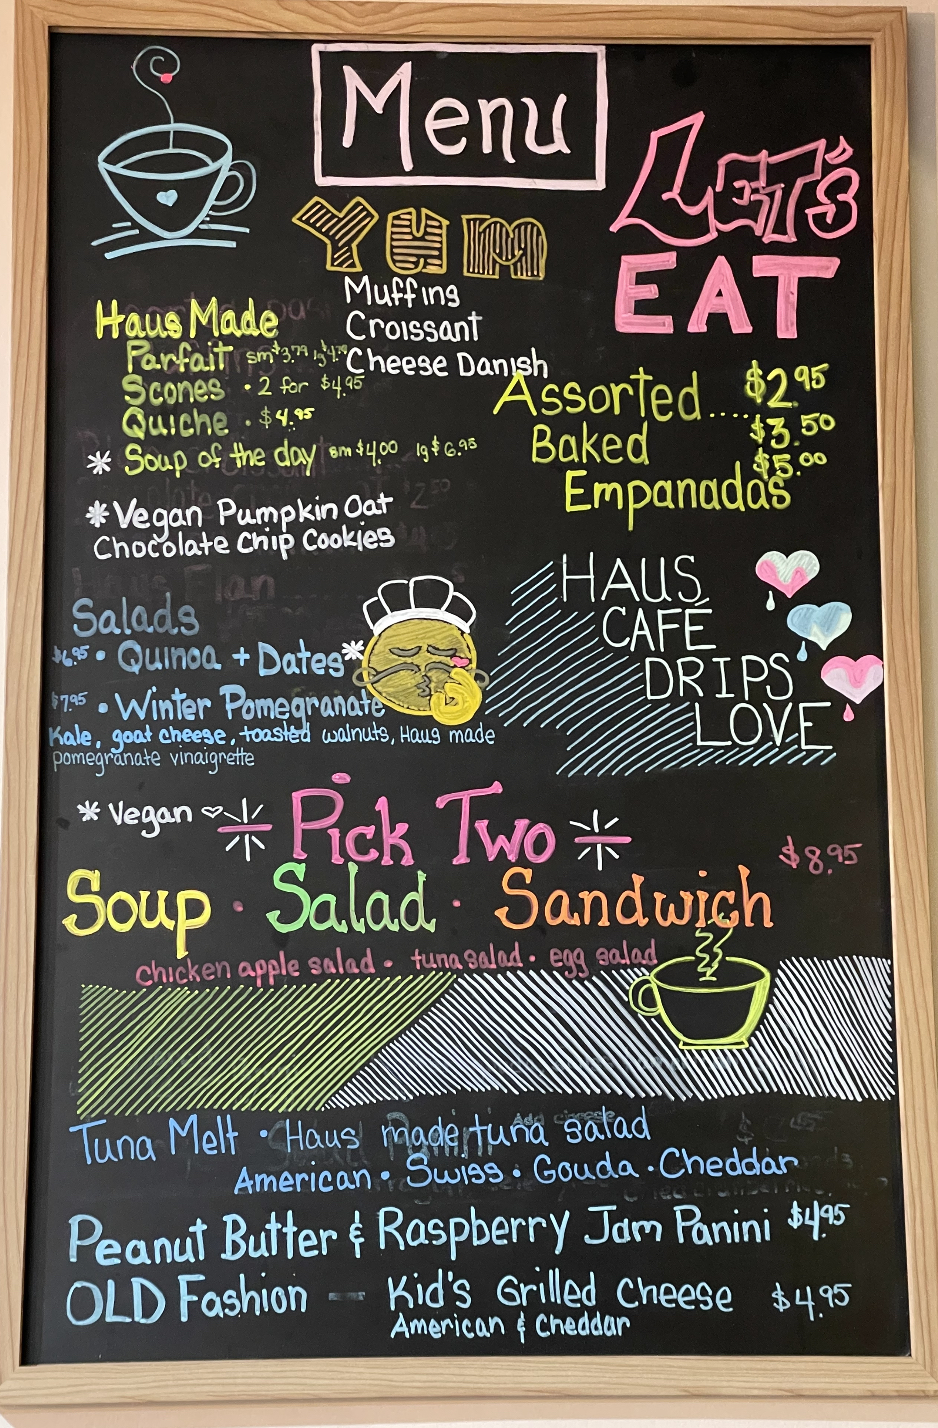 Menu
Let's
EAT
Yum
Muffins
Croissant
Cheese Danish
Haus Made
Parfait sm $3.79 lg $4.79
Scones · 2 for $4.95
Quiche · $4.95
* Soup of the day sm $4.00 lg $6.95
* Vegan Pumpkin Oat
Chocolate Chip Cookies
Assorted.... $2.95
Baked $3.50
$5.00
Empanadas
HAUS
CAFE
DRIPS
LOVE
Salads
$6.95 · Quinoa + Dates*
$7.95 · Winter Pomegranate
Kale, goat cheese, toasted walnuts, Haus made
pomegranate vinaigrette
* Vegan
Pick Two
$8.95
Soup · Salad · Sandwich
chicken apple salad · tuna salad · egg salad
Tuna Melt · Haus made tuna salad
American · Swiss · Gouda · Cheddar
Peanut Butter & Raspberry Jam Panini $4.95
OLD Fashion — Kid's Grilled Cheese $4.95
American & Cheddar